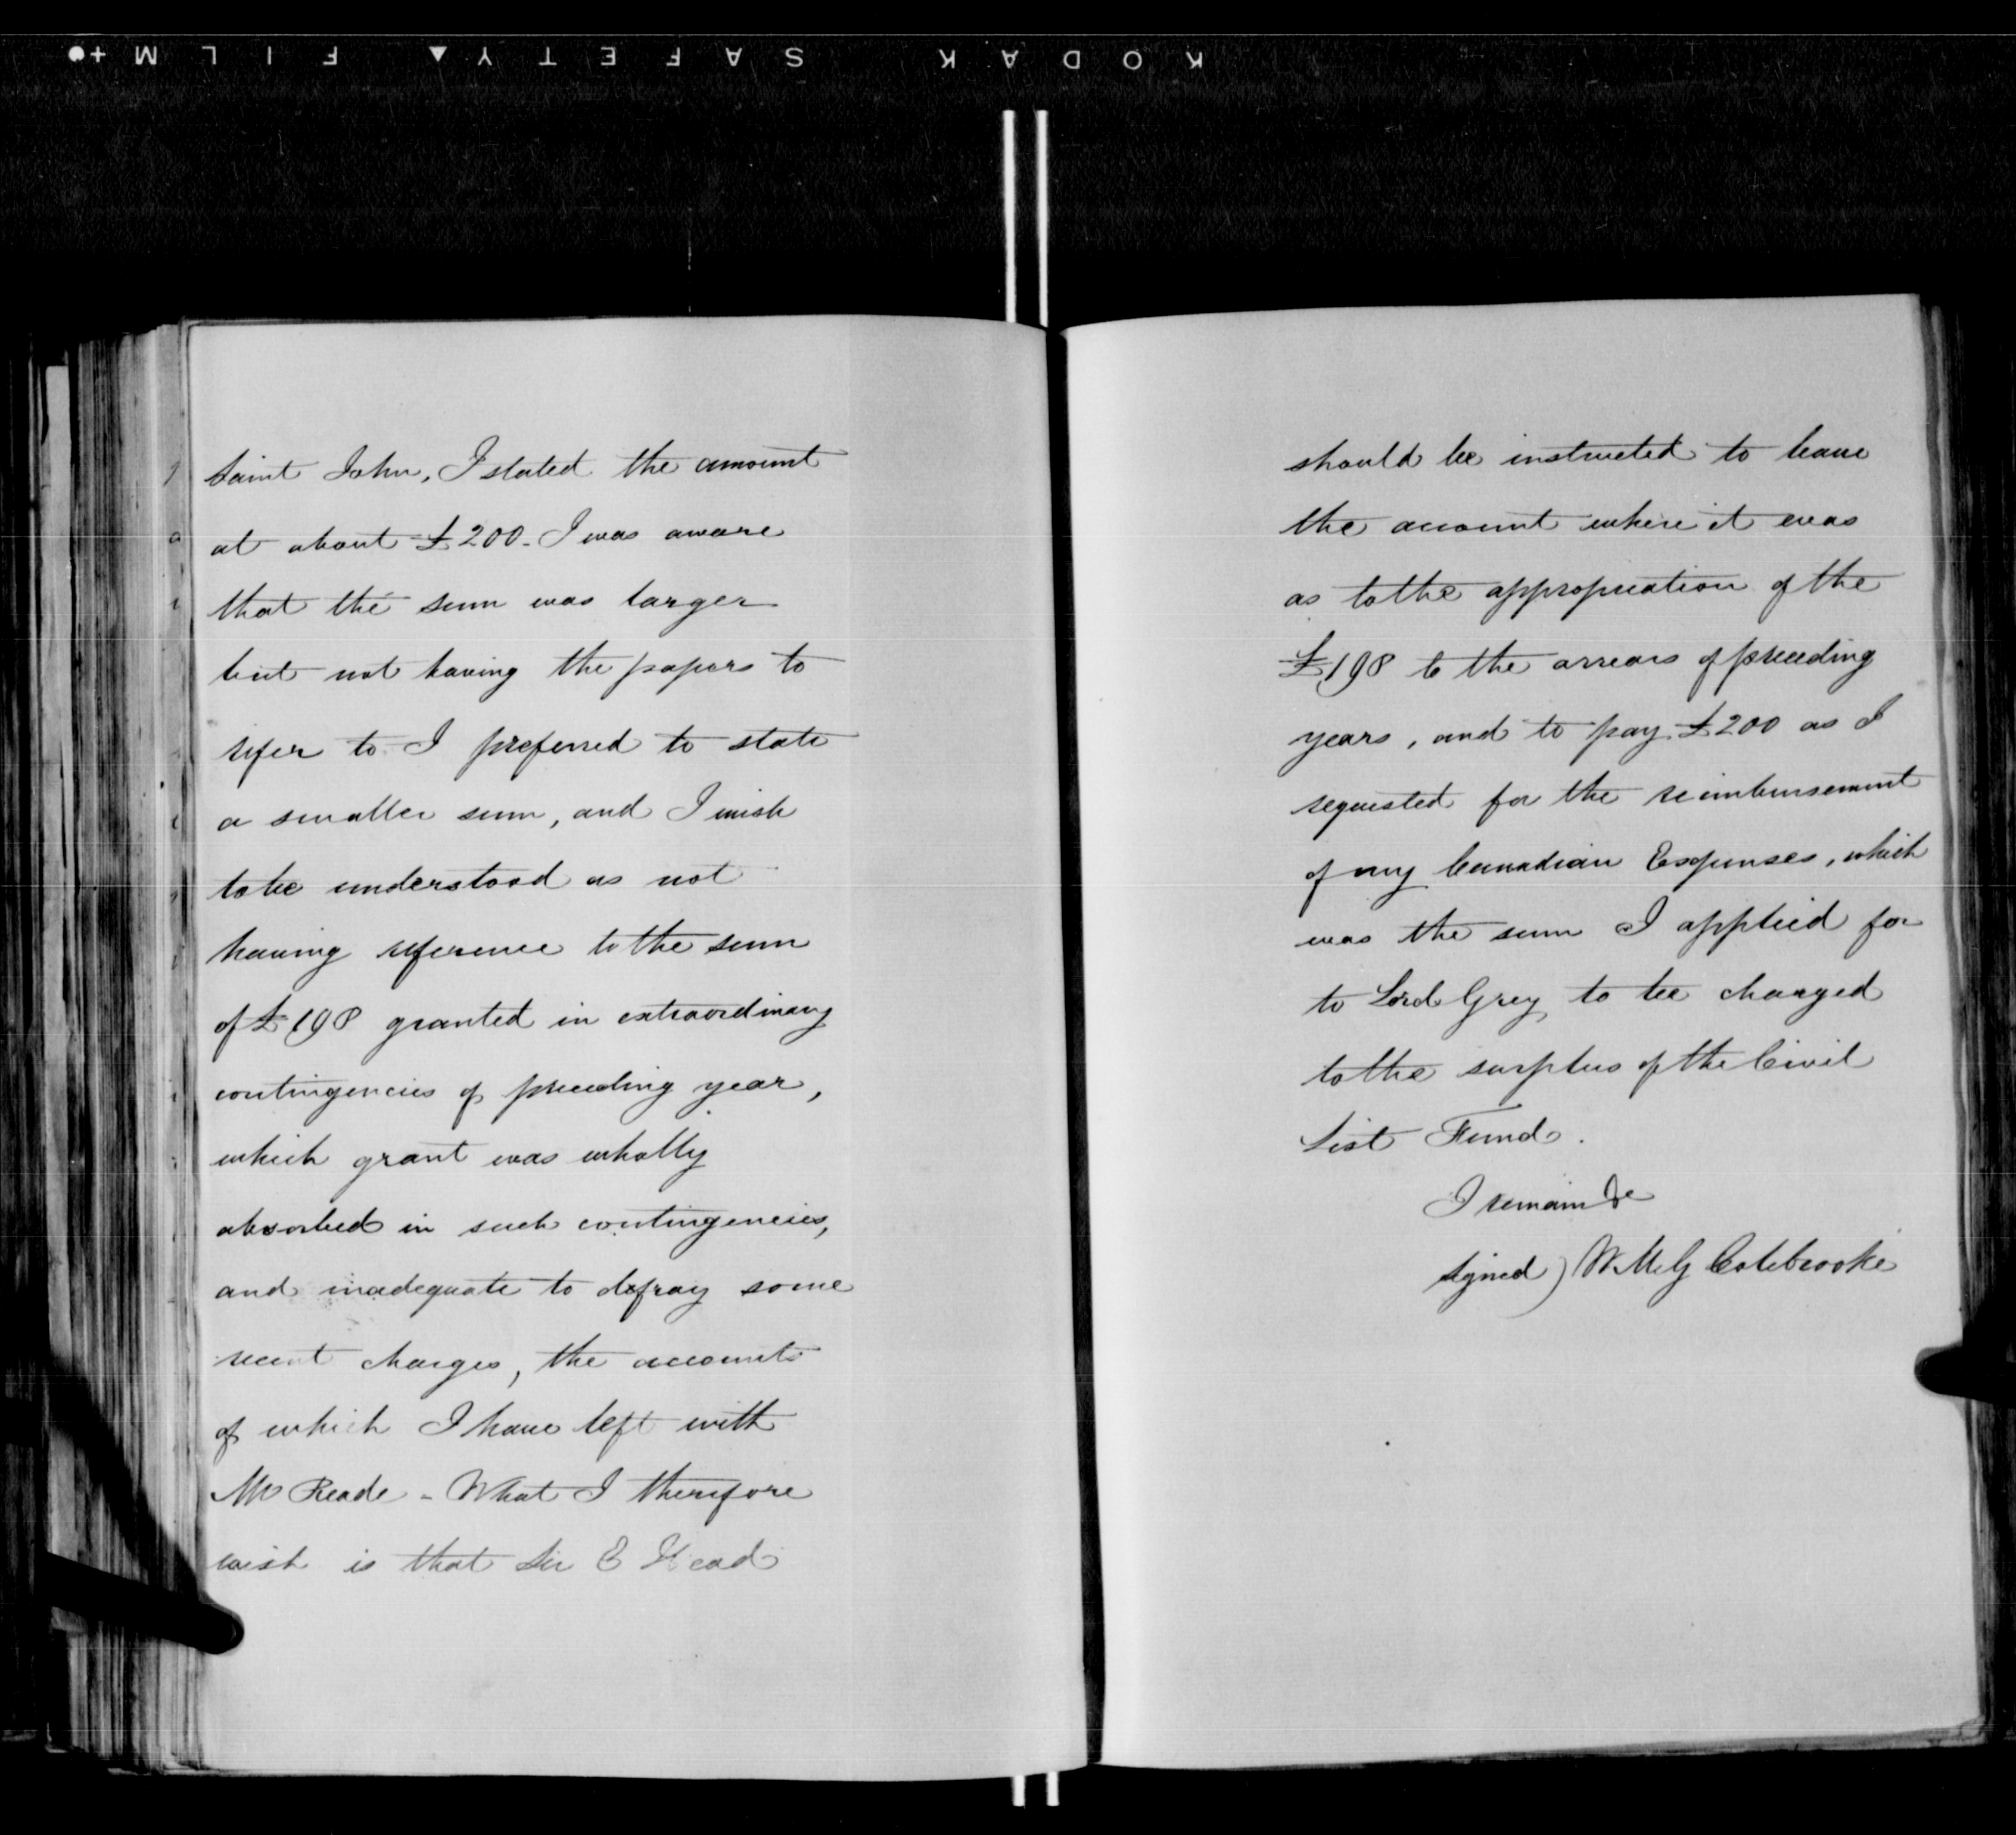 KODAK SAFETY FILM
Saint John, I stated the amount
at about £200 - I was aware
that the sum was larger
but not having the papers to
refer to I preferred to state
a smaller sum, and I wish
to be understood as not
having reference to the sum
of £198 granted in extraordinary
contingencies of preceding year,
which grant was wholly
absorbed in such contingencies,
and inadequate to defray some
recent charges, the accounts
of which I have left with
Mr Reade - What I therefore
wish is that Sir E Head
should be instructed to leave
the account where it was
as to the appropriation of the
£198 to the arrears of preceding
years, and to pay £200 as I
requested for the reimbursement
of my Canadian Expenses, which
was the sum I applied for
to Lord Grey, to be charged
to the surplus of the Civil
List Fund.
I remain &c
Signed) W. M. G Colebrooke